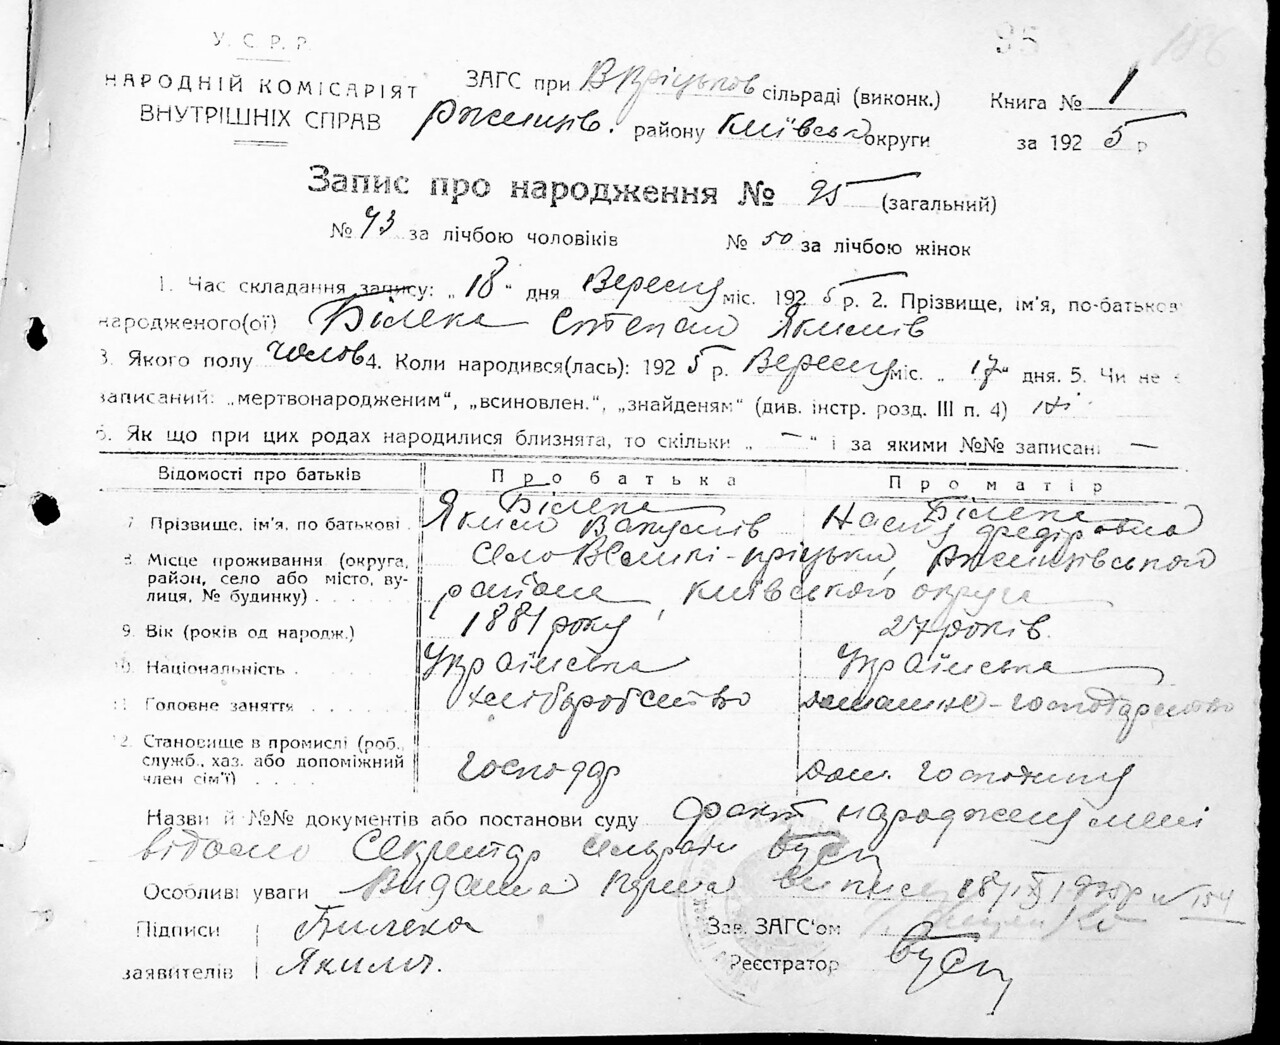 95
186
У. С. Р. Р.
НАРОДНІЙ КОМІСАРІЯТ ЗАГС при В Кріцьков сільраді (виконк.) Книга № 1
ВНУТРІШНІХ СПРАВ Ржищів. району Київськ округи за 1925 р
Запис про народження № 95 (загальний)
№ 43 за лічбою чоловіків № 50 за лічбою жінок
1. Час складання запису: „18" дня Вересня міс. 1925 р. 2. Прізвище, ім'я, по-батьков
народженого(ої) Білека Степан Якимів
3. Якого полу Чолов 4. Коли народився(лась): 1925 р. Вересня міс. „17" дня. 5. Чи не є
записаний: „мертвонародженим", „всиновлен.", „знайденям" (див. інстр. розд. III п. 4) Ні
6. Як що при цих родах народилися близнята, то скільки „—" і за якими №№ записані —
Відомості про батьків Про батька Про матір
Білека Білека
7 Прізвище, ім'я, по батькові . Яким Вакумів Федорівна
8 Місце проживання (округа, Село Великі-Кріцьки, Ржищівського
район, село або місто, ву- района, Київського округа
лиця, № будинку) . . . . .
9. Вік (років од народж.) 1881 року 27 років.
10. Національність . Українська Українська
11 Головне заняття . . . . . хліборобство домашнє-господарство
12. Становище в промислі (роб.,
служб., хаз. або допоміжний Господар дом. господиня
член сім'ї) . . . .
Назви й №№ документів або постанови суду факт народження мені
відомо Секретар сільради
Особливі уваги Видана перша випись 18/IX 1925р № 154
Підписи Билека Зав. ЗАГС'ом
заявителів Яким. Реєстратор